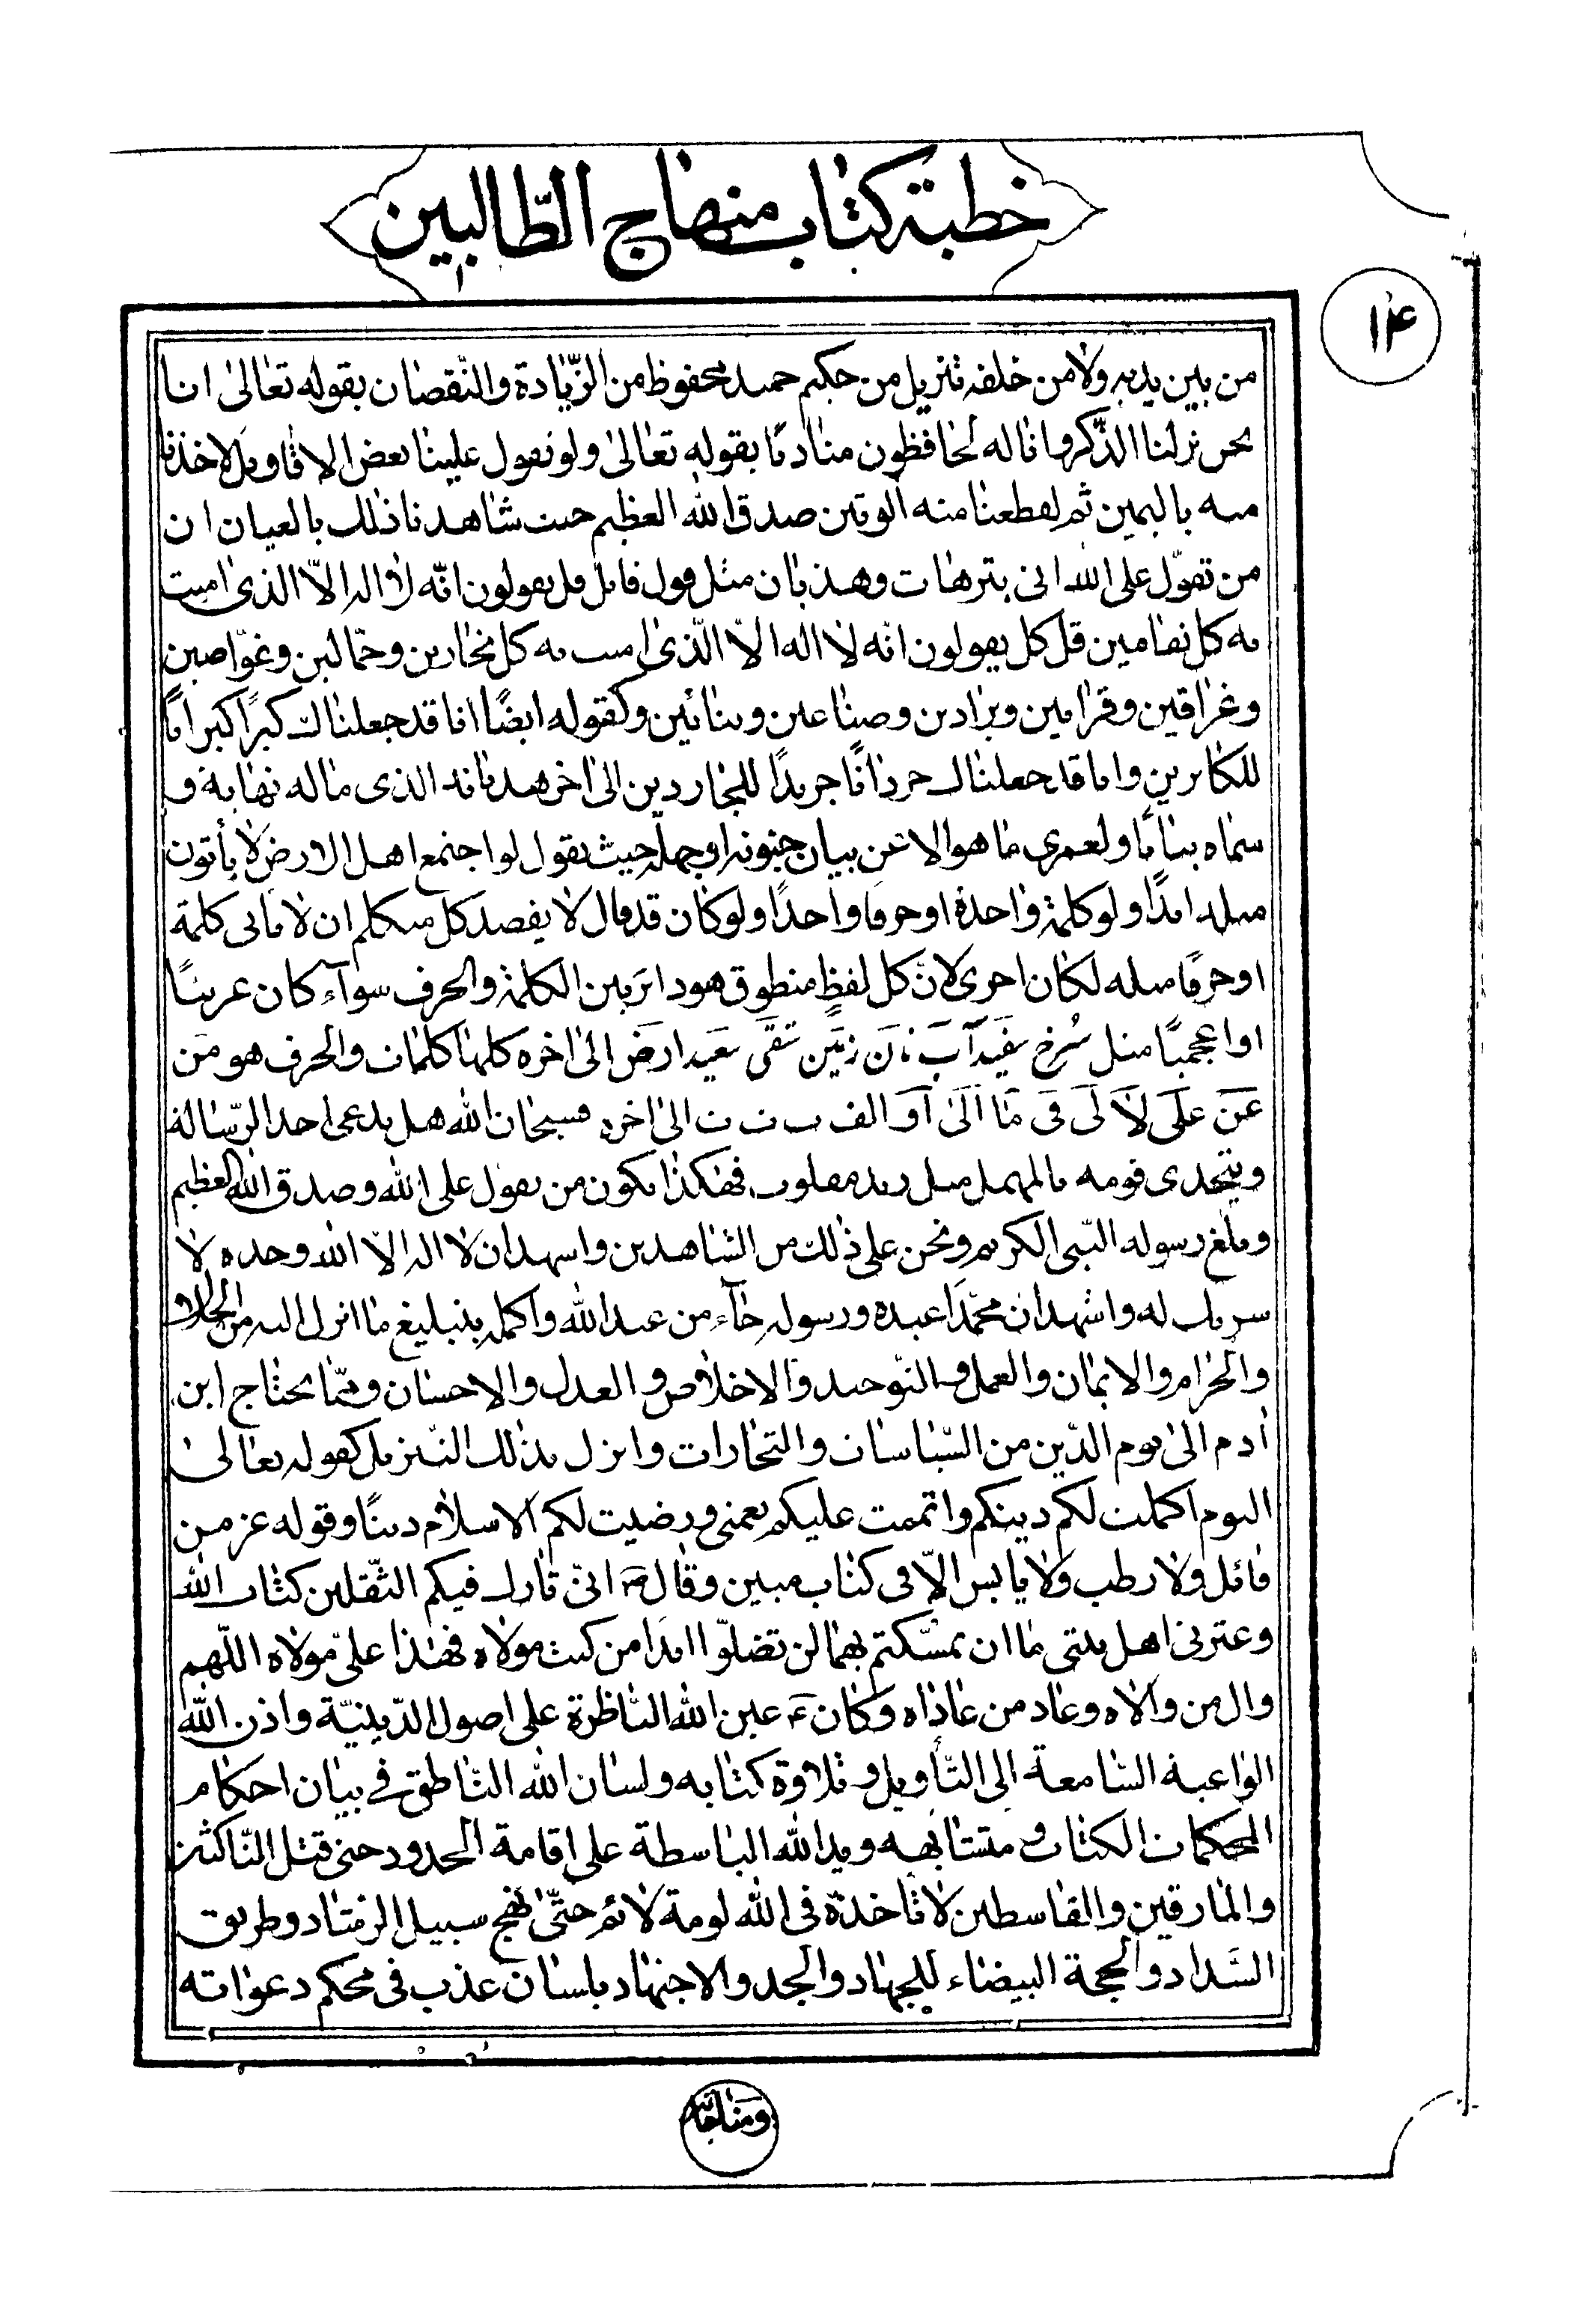 خطبة كتاب منهاج الطّالبين
١۴
من بين يديه ولا من خلفه تنزيل من حكيم حميد محفوظ من الزّيادة والنّقصان بقوله تعالى انا
نحن نزلنا الذّكر وانا له لحافظون مناديا بقوله تعالى ولو تقول علينا بعض الاقاويل لاخذنا
منه باليمين ثم لقطعنا منه الوتين صدق الله العظيم حيث شاهدنا ذلك بالعيان ان
من تقوّل على الله اتى بترهات وهذيان مثل قول قائل قل يقولون انّه لا اله الاّ الذى امنت
به كل نقامين قل كل يقولون انّه لا اله الاّ الّذى امنت به كل نجارين وحمّالين وغوّاصين
وغراقين وقرامين وبرادين وصناعين وبنائين وكقوله ايضًا انا قد جعلناك كبرًا كبرانًا
للكابرين وانا قد جعلناك جردانًا جريدًا للجاردين الى اخر هذيانه الذى ماله نهاية و
سماه بيانًا ولعمري ما هو الا عن بيان جنونه او جهله حيث يقول لو اجتمع اهل الارض لا يأتون
بمثله ابدًا ولو كلمة واحدة او حرفا واحدًا ولو كان قد قال لا يقصد كل متكلم ان لا يأتى كلمة
او حرفًا مثله لكان احرى لانّ كل لفظ منطوق هو دائر بين الكلمة والحرف سوآء كان عربيًا
او اعجميًا مثل سُرخ سَفيد آب نان زمَين تقَى سَعيد ارضَ الى اخره كلها كلمات والحرف هو من
عَن عَلى لَا لَى فى مَا الَىٰ اَو الف ب ت ث الى اخره فسبحان الله هل يدعى احد الرّسالة
ويتحدى قومه بالمهمل مثل ريد مقلوب فهكذا يكون من يقول على الله وصدق الله العظيم
وبلّغ رسوله النّبى الكريم ونحن على ذلك من الشاهدين واشهد ان لا اله الاّ الله وحده لا
شريك له واشهد ان محمّدا عبده ورسوله جآء من عند الله واكمله بتبليغ ما انزل اليه من الحلال
والحرام والايمان والعمل والتّوحيد والاخلاص والعدل والاحسان وممّا يحتاج ابن
آدم الى يوم الدّين من السّياسات والتجارات وانزل بذلك التنزيل كقوله تعالى
اليوم اكملت لكم دينكم واتممت عليكم نعمتى ورضيت لكم الاسلام دينًا وقوله عز من
قائل ولا رطب ولا يابس الاّ فى كتاب مبين وقال ص انىّ تارك فيكم الثّقلين كتاب الله
وعترتى اهل بيتى ما ان تمسّكتم بهما لن تضلّوا ابدا من كنت مولاه فهذا علىّ مولاه اللّهم
وال من والاه وعاد من عاداه وكان ع عين الله الناظرة على اصول الدّينيّة واذن الله
الواعية السّامعة الى التّأويل وتلاوة كتابه ولسان الله الناطق في بيان احكام
المحكمات الكتاب ومتشابهه ويد الله الباسطة على اقامة الحدود حتى قتل النّاكثين
والمارقين والقاسطين لا تأخذه فى الله لومة لائم حتّى نهج سبيل الرشاد وطريق
السّداد والحجة البيضاء للجهاد والجد والاجتهاد بلسان عذب فى محكم دعواته
ومناجاته